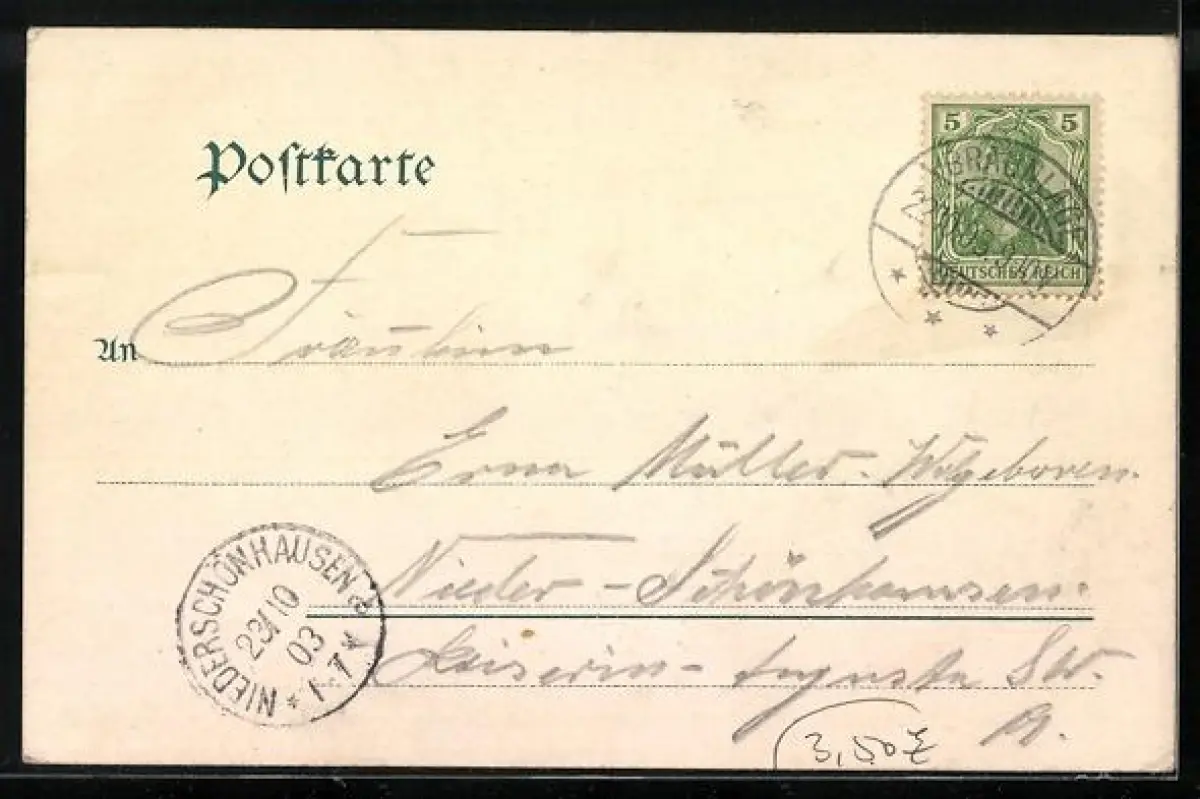 Postkarte
5 5
DEUTSCHES REICH
BRAUNLAGE
An Fräulein
Erna Müller. Wolgeboren.
Nieder-Schönhausen.
Kaiserin-Augusta Str.
NIEDERSCHÖNHAUSEN
23/10
03
1-7 N
3,50